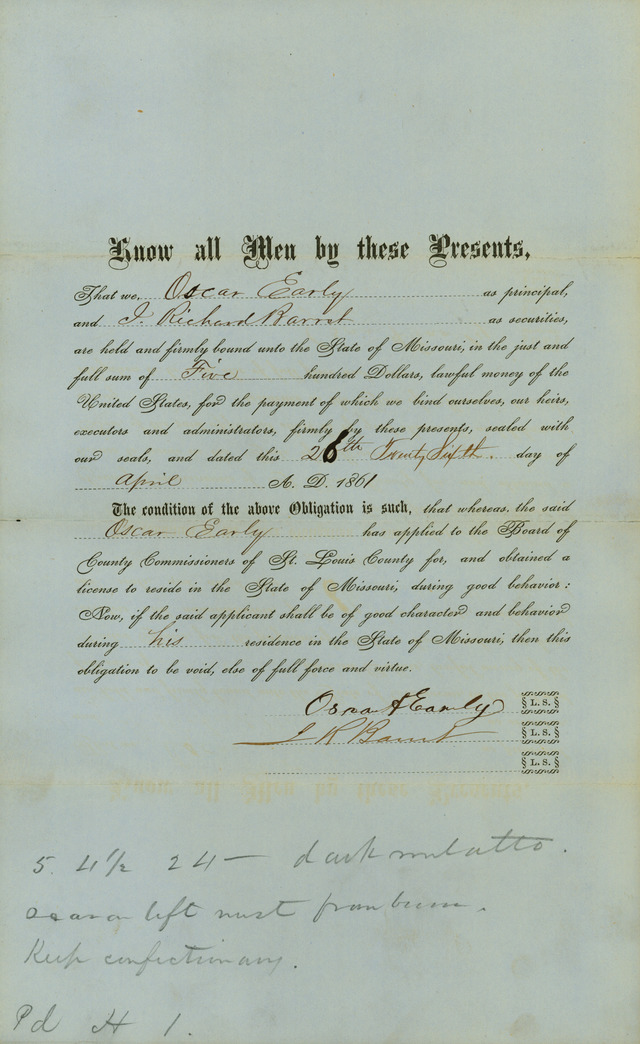 Know all Men by these Presents,
That we, Oscar Early as principal,
and J. Richard Barret as securities,
are held and firmly bound unto the State of Missouri, in the just and
full sum of Five hundred Dollars, lawful money of the
United States, for the payment of which we bind ourselves, our heirs,
executors and administrators, firmly by these presents, sealed with
our seals, and dated this 26th Twenty Sixth. day of
April A. D. 1861
The condition of the above Obligation is such, that whereas, the said
Oscar Early has applied to the Board of
County Commissioners of St. Louis County for, and obtained a
license to reside in the State of Missouri, during good behavior:
Now, if the said applicant shall be of good character and behavior
during his residence in the State of Missouri, then this
obligation to be void, else of full force and virtue.
Oscar Early § L. S. §
J R Barret § L. S. §
§ L. S. §
5. 4 1/2 24 — dark mulatto.
scar on left wrist from burn.
Keep confectionary.
Pd H 1.